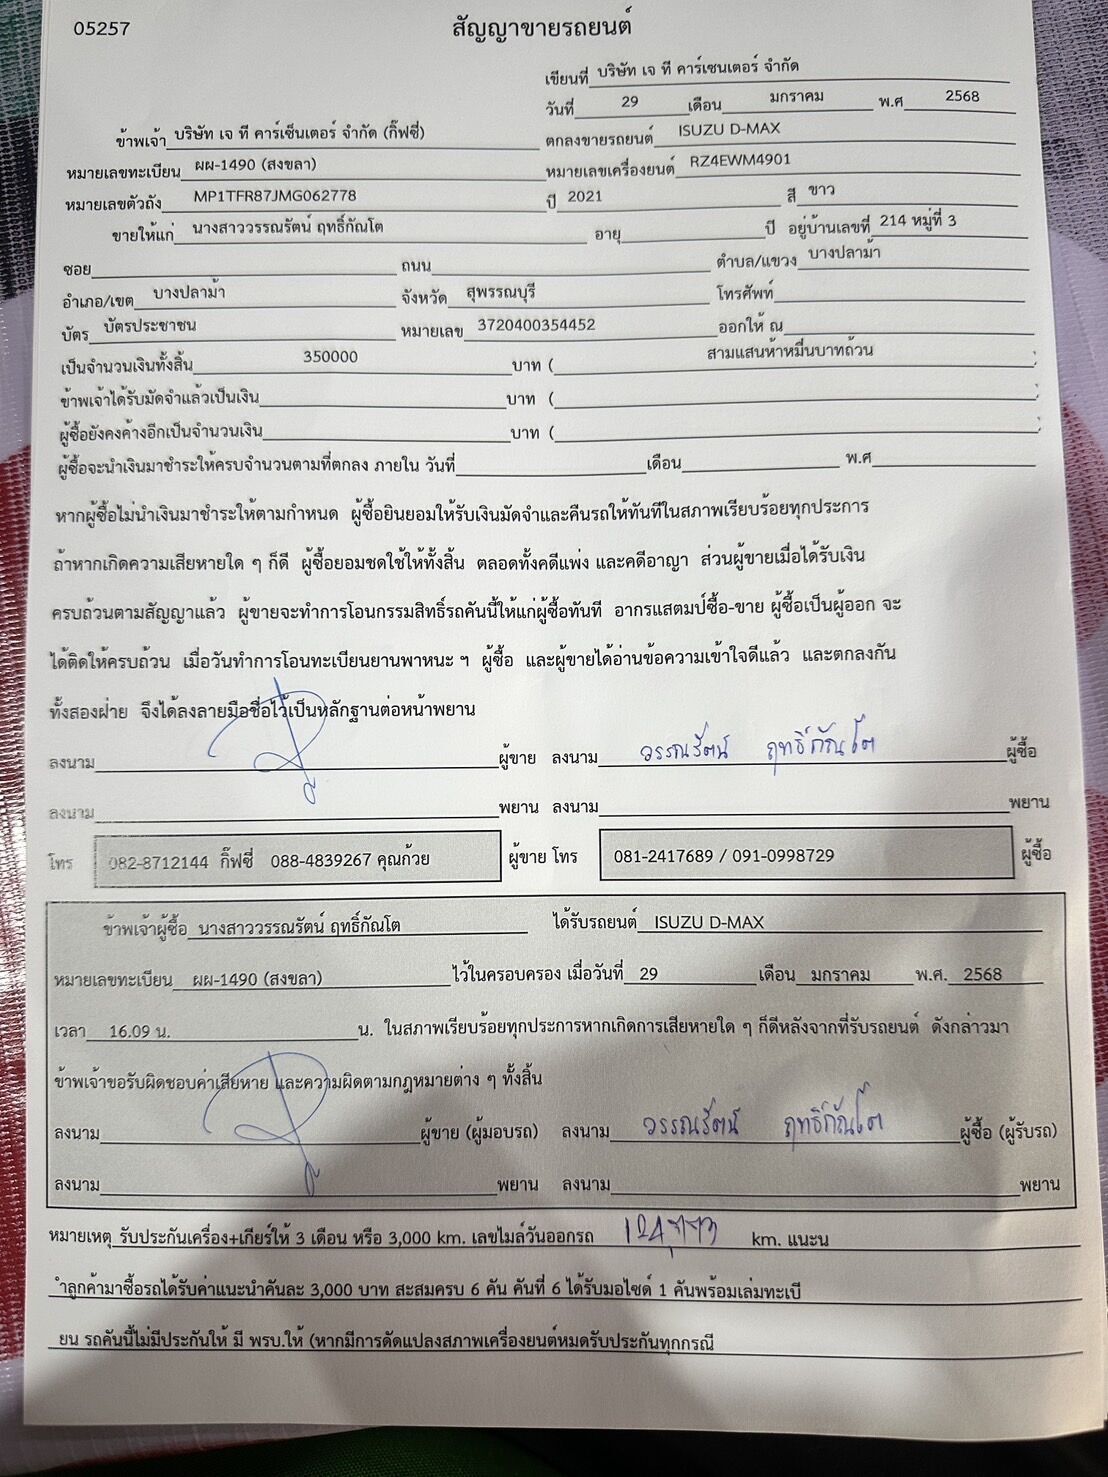 05257
สัญญาขายรถยนต์
เขียนที่ บริษัท เจ ที คาร์เซนเตอร์ จำกัด
วันที่ 29 เดือน มกราคม พ.ศ 2568
ข้าพเจ้า บริษัท เจ ที คาร์เซ็นเตอร์ จำกัด (กิ๊ฟซี่) ตกลงขายรถยนต์ ISUZU D-MAX
หมายเลขทะเบียน ผผ-1490 (สงขลา) หมายเลขเครื่องยนต์ RZ4EWM4901
หมายเลขตัวถัง MP1TFR87JMG062778 ปี 2021 สี ขาว
ขายให้แก่ นางสาววรรณรัตน์ ฤทธิ์กัณโต อายุ ปี อยู่บ้านเลขที่ 214 หมู่ที่ 3
ซอย ถนน ตำบล/แขวง บางปลาม้า
อำเภอ/เขต บางปลาม้า จังหวัด สุพรรณบุรี โทรศัพท์
บัตร บัตรประชาชน หมายเลข 3720400354452 ออกให้ ณ
เป็นจำนวนเงินทั้งสิ้น 350000 บาท ( สามแสนห้าหมื่นบาทถ้วน )
ข้าพเจ้าได้รับมัดจำแล้วเป็นเงิน บาท ( )
ผู้ซื้อยังคงค้างอีกเป็นจำนวนเงิน บาท ( )
ผู้ซื้อจะนำเงินมาชำระให้ครบจำนวนตามที่ตกลง ภายใน วันที่ เดือน พ.ศ
หากผู้ซื้อไม่นำเงินมาชำระให้ตามกำหนด ผู้ซื้อยินยอมให้รับเงินมัดจำและคืนรถให้ทันทีในสภาพเรียบร้อยทุกประการ
ถ้าหากเกิดความเสียหายใด ๆ ก็ดี ผู้ซื้อยอมชดใช้ให้ทั้งสิ้น ตลอดทั้งคดีแพ่ง และคดีอาญา ส่วนผู้ขายเมื่อได้รับเงิน
ครบถ้วนตามสัญญาแล้ว ผู้ขายจะทำการโอนกรรมสิทธิ์รถคันนี้ให้แก่ผู้ซื้อทันที อากรแสตมป์ซื้อ-ขาย ผู้ซื้อเป็นผู้ออก จะ
ได้ติดให้ครบถ้วน เมื่อวันทำการโอนทะเบียนยานพาหนะ ฯ ผู้ซื้อ และผู้ขายได้อ่านข้อความเข้าใจดีแล้ว และตกลงกัน
ทั้งสองฝ่าย จึงได้ลงลายมือชื่อไว้เป็นหลักฐานต่อหน้าพยาน
ลงนาม ผู้ขาย ลงนาม วรรณรัตน์ ฤทธิ์กัณโต ผู้ซื้อ
ลงนาม พยาน ลงนาม พยาน
โทร 082-8712144 กิ๊ฟซี่ 088-4839267 คุณก้วย ผู้ขาย โทร 081-2417689 / 091-0998729 ผู้ซื้อ
ข้าพเจ้าผู้ซื้อ นางสาววรรณรัตน์ ฤทธิ์กัณโต ได้รับรถยนต์ ISUZU D-MAX
หมายเลขทะเบียน ผผ-1490 (สงขลา) ไว้ในครอบครอง เมื่อวันที่ 29 เดือน มกราคม พ.ศ. 2568
เวลา 16.09 น. น. ในสภาพเรียบร้อยทุกประการหากเกิดการเสียหายใด ๆ ก็ดีหลังจากที่รับรถยนต์ ดังกล่าวมา
ข้าพเจ้าขอรับผิดชอบค่าเสียหาย และความผิดตามกฎหมายต่าง ๆ ทั้งสิ้น
ลงนาม ผู้ขาย (ผู้มอบรถ) ลงนาม วรรณรัตน์ ฤทธิ์กัณโต ผู้ซื้อ (ผู้รับรถ)
ลงนาม พยาน ลงนาม พยาน
หมายเหตุ รับประกันเครื่อง+เกียร์ให้ 3 เดือน หรือ 3,000 km. เลขไมล์วันออกรถ km. แนะน
ำลูกค้ามาซื้อรถได้รับค่าแนะนำคันละ 3,000 บาท สะสมครบ 6 คัน คันที่ 6 ได้รับมอไซด์ 1 คันพร้อมเล่มทะเบี
ยน รถคันนี้ไม่มีประกันให้ มี พรบ.ให้ (หากมีการดัดแปลงสภาพเครื่องยนต์หมดรับประกันทุกกรณี